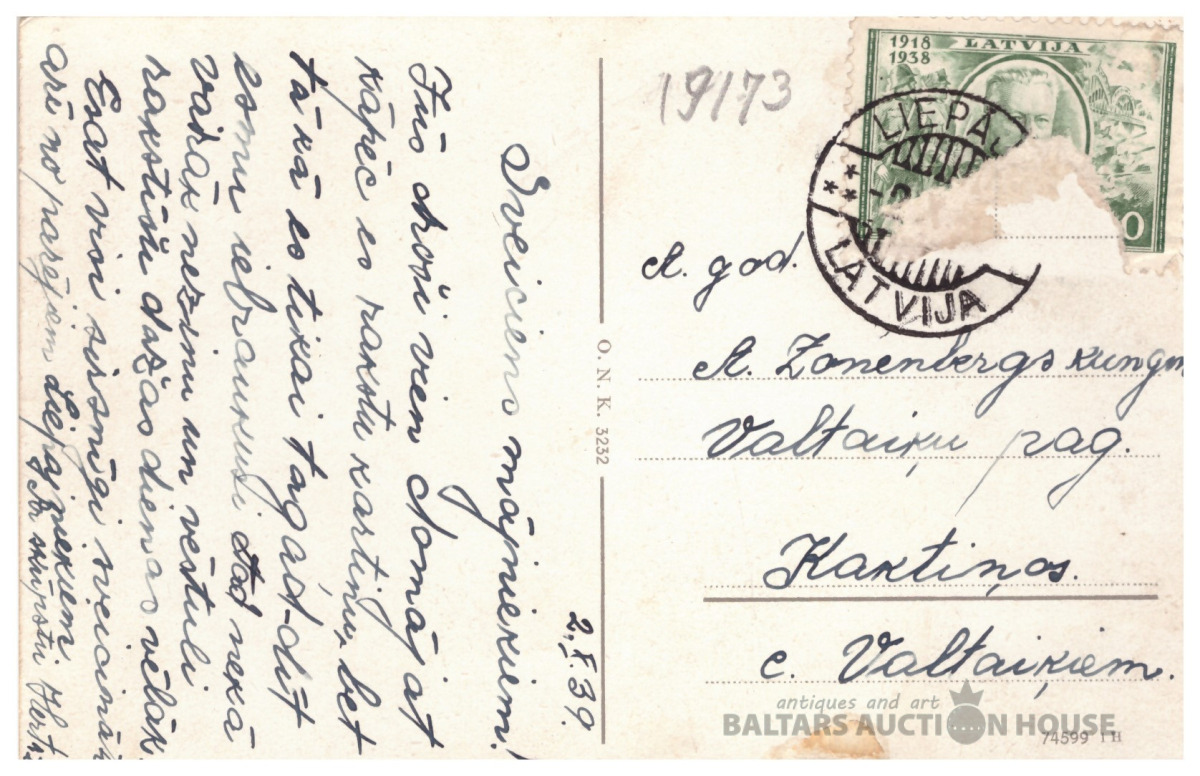 2.X.39.
Sveiciens mājniekiem!
Jūs droši vien domājat
kāpēc es rakstu kartiņu, bet
tā kā es tikai tagad
esmu iebraukusi tad nekā
vairāk nezinu un vēstuli
rakstīšu dažas dienas vēlāk
Esat visi sirsnīgi sveicināti
arī no pārējiem Liepājniekiem.
Ar skūpstu
O. N. K. 3232
19173
1918 LATVIJA
1938
0
LIEPĀJ
LATVIJA
A. god.
A. Zonenbergs kungm
Valtaiķu pag.
Kaktiņos.
c. Valtaiķiem.
antiques and art
BALTARS AUCTION HOUSE
74599 I H